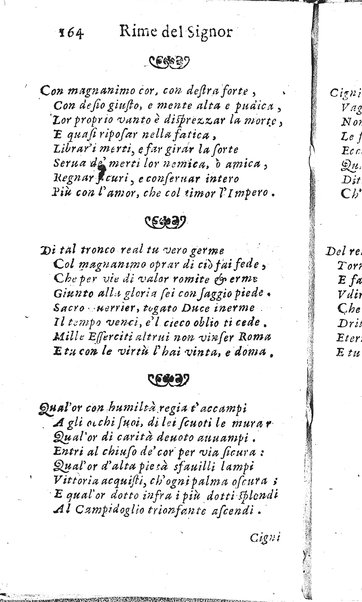 164 Rime del Signor
Con magnanimo cor, con destra forte,
Con desio giusto, e mente alta e pudica,
Lor proprio vanto è disprezzar la morte,
E quasi riposar nella fatica,
Librar'i merti, e far girar la sorte
Serua de' merti lor nemica, ò amica,
Regnar sicuri, e conseruar intero
Più con l'amor, che col timor l'Impero.
Di tal tronco real tu vero germe
Col magnanimo oprar di ciò fai fede,
Che per vie di valor romite & erme
Giunto alla gloria sei con saggio piede.
Sacro Guerrier, togato Duce inerme
Il tempo venci, e'l cieco oblio ti cede.
Mille Esserciti altrui non vinser Roma
E tu con le virtù l'hai vinta, e doma.
Qual'or con humiltà regia t'accampi
A gli occhi suoi, di lei scuoti le mura:
Qual'or di carità deuoto auuampi.
Entri al chiuso de' cor per via sicura:
Qual'or d'alta pietà sfauilli lampi
Vittoria acquisti, ch'ogni palma oscura;
E qual'or dotto infra i più dotti splendi
Al Campidoglio trionfante ascendi.
Cigni
Cigni
Vag
Non
Le s
Ecc
Qua
Dit
Ch'
Del re
Torn
E f
Vdir
Che
Drit
Eter
E tu